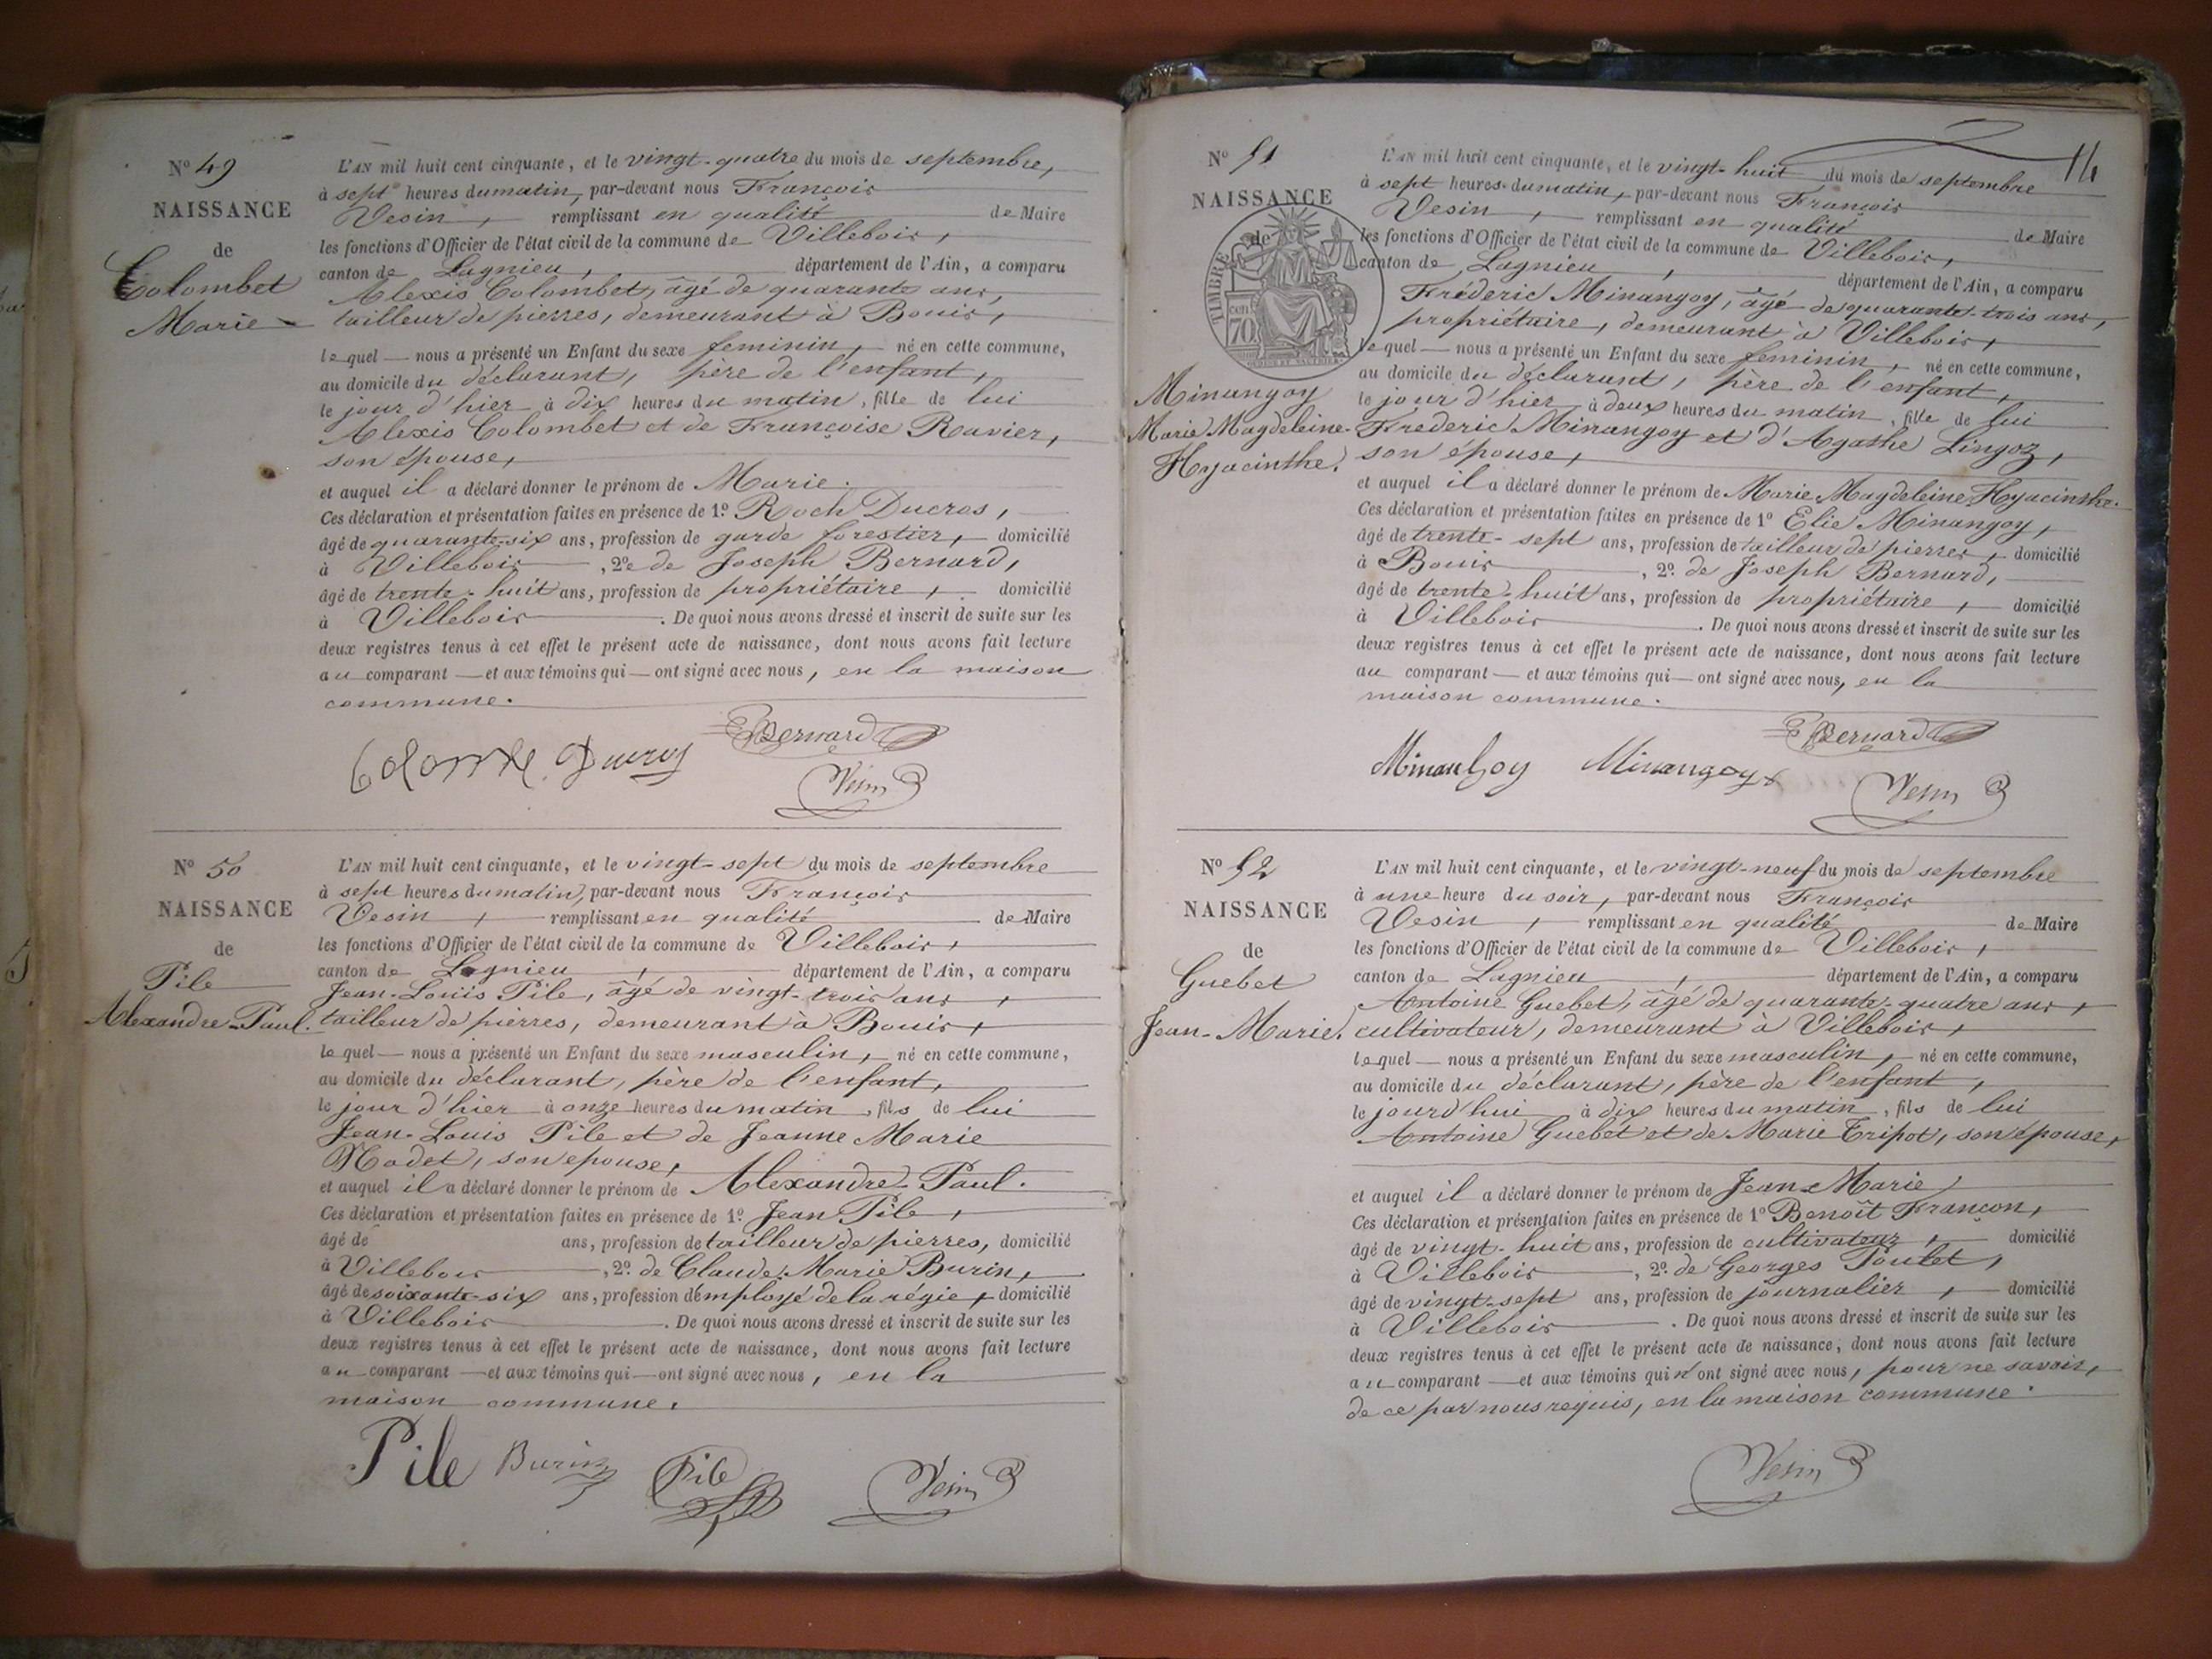 Nº 49
NAISSANCE
de
Colombet
Marie
L'AN mil huit cent cinquante, et le vingt-quatre du mois de septembre,
à sept heures du matin, par-devant nous François
Vesin, remplissant en qualité de Maire
les fonctions d'Officier de l'état civil de la commune de Villebois,
canton de Lagnieu, département de l'Ain, a comparu
Alexis Colombet, âgé de quarante ans,
tailleur de pierres, demeurant à Bouis,
lequel — nous a présenté un Enfant du sexe feminin, né en cette commune,
au domicile du déclarant, père de l'enfant,
le jour d'hier à dix heures du matin, fille de lui
Alexis Colombet et de Françoise Ravier,
son épouse,
et auquel il a déclaré donner le prénom de Marie.
Ces déclaration et présentation faites en présence de 1º Roch Ducros,
âgé de quarante-six ans, profession de garde forestier, domicilié
à Villebois, 2º de Joseph Bernard,
âgé de trente-huit ans, profession de propriétaire, domicilié
à Villebois. De quoi nous avons dressé et inscrit de suite sur les
deux registres tenus à cet effet le présent acte de naissance, dont nous avons fait lecture
au comparant — et aux témoins qui — ont signé avec nous, en la maison
commune.
Ducros Bernard
Vesin
Nº 50
NAISSANCE
de
Pile
Alexandre-Paul.
L'AN mil huit cent cinquante, et le vingt-sept du mois de septembre
à sept heures du matin, par-devant nous François
Vesin, remplissant en qualité de Maire
les fonctions d'Officier de l'état civil de la commune de Villebois,
canton de Lagnieu, département de l'Ain, a comparu
Jean-Louis Pile, âgé de vingt-trois ans,
tailleur de pierres, demeurant à Bouis,
lequel — nous a présenté un Enfant du sexe masculin, né en cette commune,
au domicile du déclarant, père de l'enfant,
le jour d'hier à onze heures du matin, fils de lui
Jean-Louis Pile et de Jeanne Marie
Nodet, son epouse,
et auquel il a déclaré donner le prénom de Alexandre-Paul.
Ces déclaration et présentation faites en présence de 1º Jean Pile,
âgé de ans, profession de tailleur de pierres, domicilié
à Villebois, 2º de Claude Marie Burin,
âgé de soixante-six ans, profession d'employé de la régie, domicilié
à Villebois. De quoi nous avons dressé et inscrit de suite sur les
deux registres tenus à cet effet le présent acte de naissance, dont nous avons fait lecture
au comparant — et aux témoins qui — ont signé avec nous, en la
maison commune.
Pile Burin Pile Vesin
14
Nº 51
NAISSANCE
de
TIMBRE
70 cen
Minangoy
Marie Magdeleine-
Hyacinthe.
L'AN mil huit cent cinquante, et le vingt-huit du mois de septembre
à sept heures du matin, par-devant nous François
Vesin, remplissant en qualité de Maire
les fonctions d'Officier de l'état civil de la commune de Villebois,
canton de Lagnieu, département de l'Ain, a comparu
Fréderic Minangoy, âgé de quarante-trois ans,
propriétaire, demeurant à Villebois,
lequel — nous a présenté un Enfant du sexe feminin, né en cette commune,
au domicile du déclarant, père de l'enfant,
le jour d'hier à deux heures du matin, fille de lui
Frederic Minangoy et d'Agathe Lingoz,
son épouse,
et auquel il a déclaré donner le prénom de Marie Magdeleine Hyacinthe.
Ces déclaration et présentation faites en présence de 1º Elie Minangoy,
âgé de trente-sept ans, profession de tailleur de pierres, domicilié
à Bouis, 2º de Joseph Bernard,
âgé de trente-huit ans, profession de propriétaire, domicilié
à Villebois. De quoi nous avons dressé et inscrit de suite sur les
deux registres tenus à cet effet le présent acte de naissance, dont nous avons fait lecture
au comparant — et aux témoins qui — ont signé avec nous, en la
maison commune.
Minangoy Bernard
Vesin
Nº 52
NAISSANCE
de
Guebet
Jean-Marie.
L'AN mil huit cent cinquante, et le vingt-neuf du mois de septembre
à une heure du soir, par-devant nous François
Vesin, remplissant en qualité de Maire
les fonctions d'Officier de l'état civil de la commune de Villebois,
canton de Lagnieu, département de l'Ain, a comparu
Antoine Guebet, âgé de quarante-quatre ans,
cultivateur, demeurant à Villebois,
lequel — nous a présenté un Enfant du sexe masculin, né en cette commune,
au domicile du déclarant, père de l'enfant,
le jourd'hui à dix heures du matin, fils de lui
Antoine Guebet et de Marie Tripot, son épouse,
et auquel il a déclaré donner le prénom de Jean-Marie
Ces déclaration et présentation faites en présence de 1º Benoît Françon,
âgé de vingt-huit ans, profession de cultivateur, domicilié
à Villebois, 2º de Georges Poulet,
âgé de vingt-sept ans, profession de journalier, domicilié
à Villebois. De quoi nous avons dressé et inscrit de suite sur les
deux registres tenus à cet effet le présent acte de naissance, dont nous avons fait lecture
au comparant — et aux témoins qui n'ont signé avec nous, pour ne savoir,
de ce par nous requis, en la maison commune.
Vesin